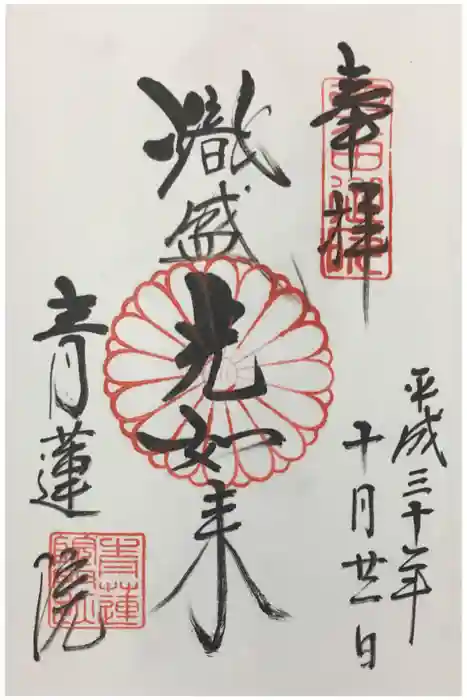 奉拝
平成三十年
十月廿一日
熾盛光如来
青蓮院